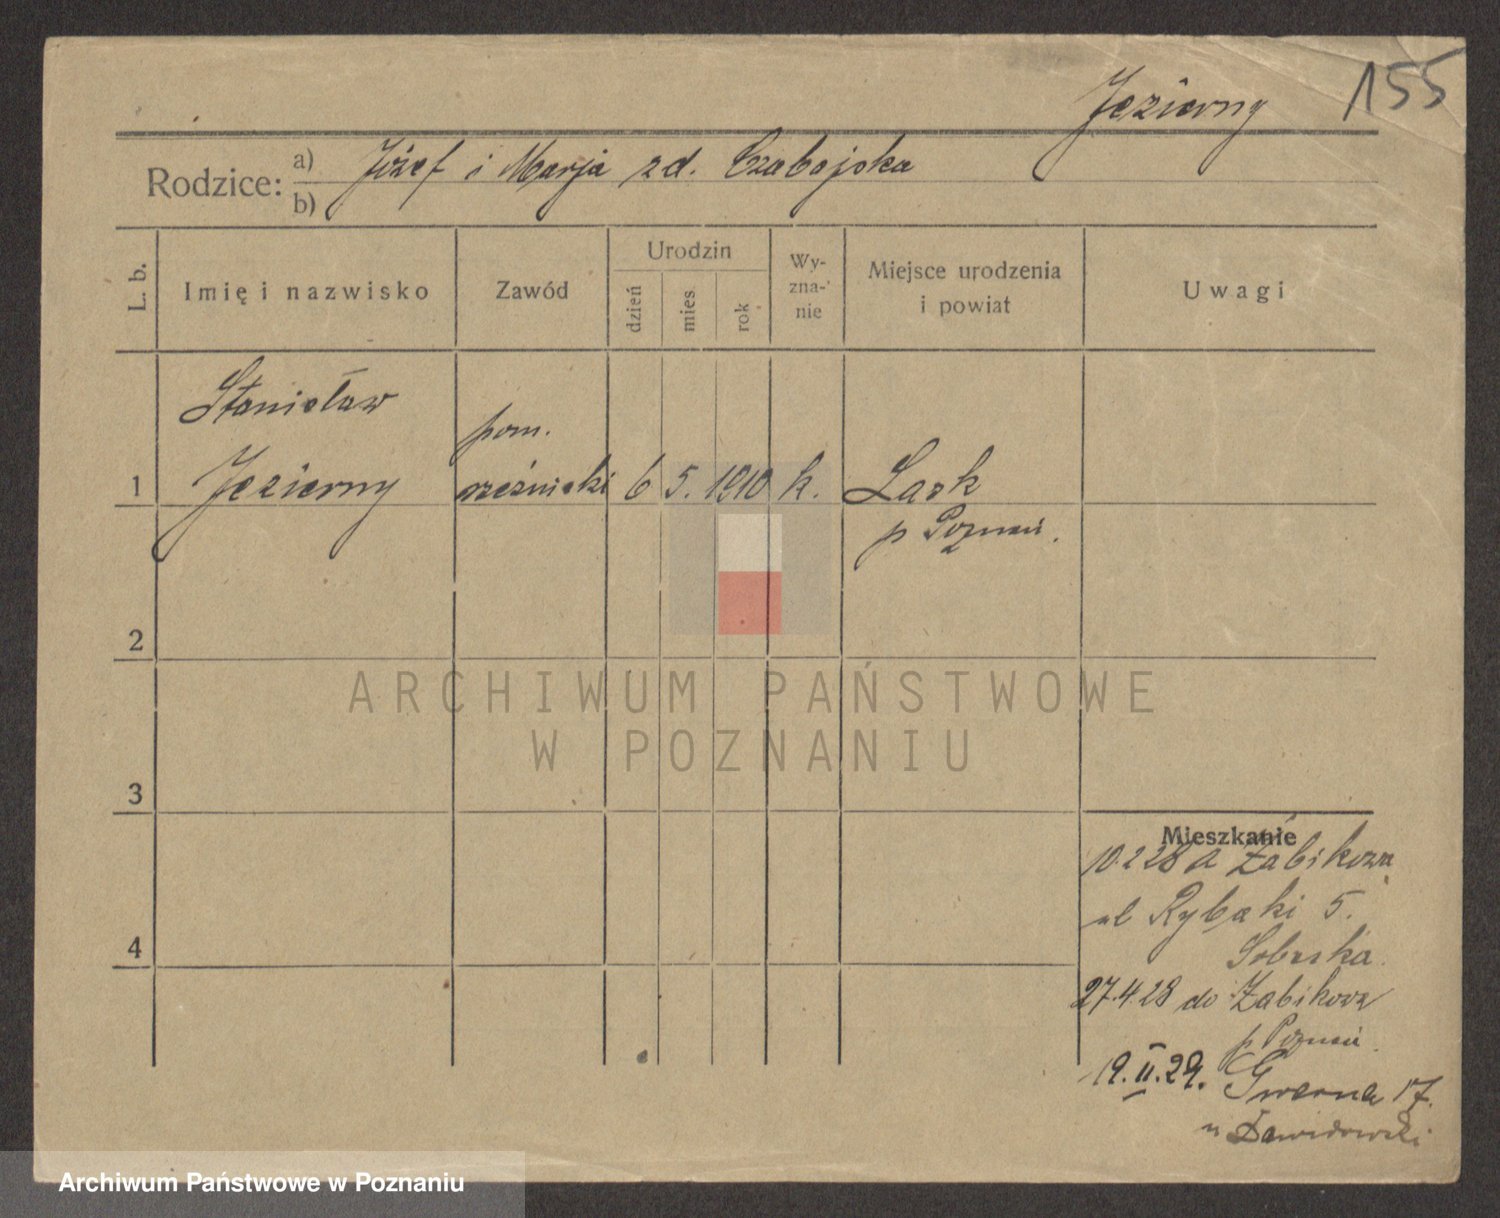 Jezierny 155
Rodzice: a) Józef i Marja zd. Czabajska
b)
L. b. Imię i nazwisko Zawód Urodzin dzień mies. rok Wy-zna-nie Miejsce urodzenia i powiat Uwagi
Stanisław
pom.
1 Jezierny rzeźnicki 6 5. 1910 k. Lask
p Poznań.
2
ARCHIWUM PAŃSTWOWE
W POZNANIU
3
Mieszkanie
10.2 28 a Żabikowa
ul Rybaki 5.
27.4.28 do Żabikowa
p Poznań.
4
19.II.29. Gwarna 17.
u Dawidowski
Archiwum Państwowe w Poznaniu